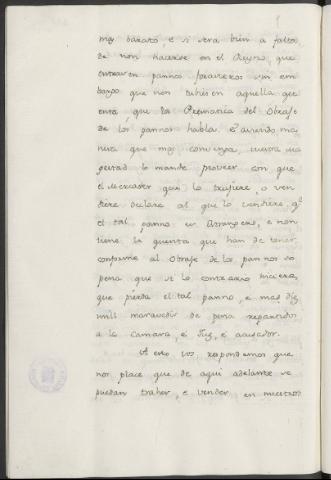 mas barato, e si sera bien a falta
de non hacerse en el Reyno, que
entrasen pannos foraneros sin em
bargo que non tubiesen aquella que
enta, que la Prematica del Obraje
de los pannos habla, e aviendo ma
nera que mas convenga, vuestra ma
gestad lo mande proveer con que
el Mercader que lo trajiere, o ven
diere declare al que lo vendiere, q.e
el tal panno es estrangero, e non
tiene la quenta que han de tener
conforme al Obraje de los pannos so
pena que si lo contrario hiciere,
que pierda el tal panno, e mas diez
mill maravedis de pena repartidos
a la Camara, e Juez, e acusador.
A esto vos respondemos que
nos place que de aqui adelante se
puedan traher, e vender en nuestros